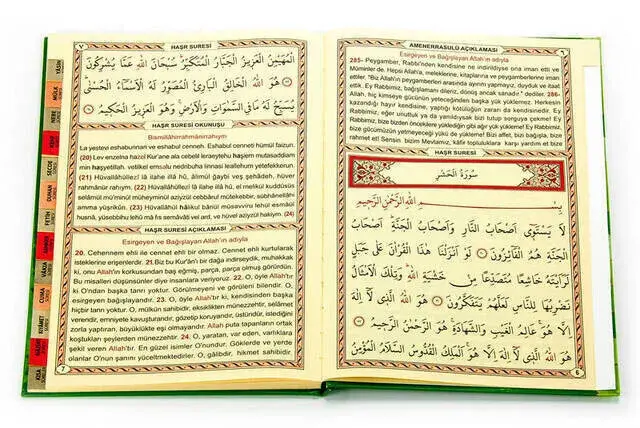 AMENERRASULÜ AÇIKLAMASI
٦
Esirgeyen ve Bağışlayan Allah'ın adıyla
285- Peygamber, Rabbi'nden kendisine ne indirildiyse ona iman etti ve
Müminler de. Hepsi Allah'a, meleklerine, kitaplarına ve peygamberlerine iman
ettiler. "Biz Allah'ın peygamberleri arasında ayırım yapmayız, duyduk ve itaat
ettik. Ey Rabbimiz, bağışlamanı dileriz, dönüş ancak sanadır" dediler. 286-
Allah, hiç kimseye gücünün yeteceğinden başka yük yüklemez. Herkesin
kazandığı hayır kendisine, yaptığı kötülüğün zararı da kendisinedir. Ey
Rabbimiz, eğer unuttuk ya da yanıldıysak bizi tutup sorguya çekme! Ey
Rabbimiz, bize bizden öncekilere yüklediğin gibi ağır yük yükleme. Ey Rabbimiz,
bize gücümüzün yetmeyeceği yükü de yükleme! Bizi affet, bizi bağışla, bize
rahmet et! Sensin bizim Mevlamız, kâfir topluluklara karşı yardım et bize
HAŞR SURESİ
سُورَةُ الْحَشْرِ
بِسْمِ اللهِ الرَّحْمٰنِ الرَّحِيمِ
لَا يَسْتَوِٓي اَصْحَابُ النَّارِ وَاَصْحَابُ الْجَنَّةِ اَصْحَابُ
الْجَنَّةِ هُمُ الْفَٓائِزُونَ لَوْ اَنْزَلْنَا هٰذَا الْقُرْاٰنَ عَلٰى جَبَلٍ
لَرَاَيْتَهُ خَاشِعًا مُتَصَدِّعًا مِنْ خَشْيَةِ اللهِ وَتِلْكَ الْاَمْثَالُ
نَضْرِبُهَا لِلنَّاسِ لَعَلَّهُمْ يَتَفَكَّرُونَ هُوَ اللهُ الَّذِي لَٓا اِلٰهَ
اِلَّا هُوَ عَالِمُ الْغَيْبِ وَالشَّهَادَةِ هُوَ الرَّحْمٰنُ الرَّحِيمُ
هُوَ اللهُ الَّذِي لَٓا اِلٰهَ اِلَّا هُوَ اَلْمَلِكُ الْقُدُّوسُ السَّلَامُ الْمُؤْمِنُ
6
٧
HAŞR SURESİ
الْمُهَيْمِنُ الْعَزِيزُ الْجَبَّارُ الْمُتَكَبِّرُ سُبْحَانَ اللهِ عَمَّا يُشْرِكُونَ
هُوَ اللهُ الْخَالِقُ الْبَارِئُ الْمُصَوِّرُ لَهُ الْاَسْمَٓاءُ الْحُسْنٰى
يُسَبِّحُ لَهُ مَا فِي السَّمٰوَاتِ وَالْاَرْضِ وَهُوَ الْعَزِيزُ الْحَكِيمُ
HAŞR SURESİ OKUNUŞU
Bismillâhirrahmânirrahıym
La yesteni eshabunnari ve eshabul cenneh. Eshabul cenneti hümül faizun.
(20) Lev enzelna hazel Kur'ane ala cebelil leraeytehu haşiem mutasaddiam
min haşyetillah. vetilkel emsalu nedribuha linnasi leallehum yetefekkerun.
(21) Hüvallâhüllezî lâ ilahe illâ hû, âlimül ğaybi veş şehâdeh, hüver
rahmânür rahym. (22) Hüvallâhüllezî lâ ilahe illâ hû, el melikül kuddüsüs
selâmül mü'minül müheyminül azîzül cebbârul mütekebbir, sübhânellâhi
amma yüşrikûn. (23) Hüvallâhül hâlikul bâriül müsavviru lehül esmâül
husnâ, yüsebbihu lehû mâ fis semâvâti vel ard, ve hüvel azîzyül hakiym. (24)
HAŞR SURESİ AÇIKLAMASI
Esirgeyen ve Bağışlayan Allah'ın adıyla
20. Cehennem ehli ile cennet ehli bir olmaz. Cennet ehli kurtularak
isteklerine erigenlerdir. 21.Biz bu Kur'an'ı bir dağa indirseydik, muhakkak
ki, onu Allah'ın korkusundan baş eğmiş, parça, parça olmuş görürdün.
Bu misalleri düşünsünler diye insanlara veriyoruz. 22. O, öyle Allah'tır
ki O'ndan başka tanrı yoktur. Görülmeyeni ve görüleni bilendir. O,
esirgeyen bağışlayandır. 23. O, öyle Allah'tır ki, kendisinden başka
hiçbir tanrı yoktur. O, mülkün sahibidir, eksiklikten münezzehtir, selâmet
verendir, emniyete kavuşturandır, gözetip koruyandır, üstündür, istediğini
zorla yaptıran, büyüklükte eşi olmayandır. Allah puta tapanların ortak
koştukları şeylerden münezzehtir. 24. O, yaratan, var eden, varlıklara
şekil veren Allah'tır. En güzel isimler O'nundur. Göklerde ve yerde
olanlar O'nun şanını yüceltmektedirler. O, gâlibdir, hikmet sahibidir.
7
YASİN
MÜLK
NEBE
SECDE
DUHAN
FETİH
RAHMAN
VAKIA
CUMA